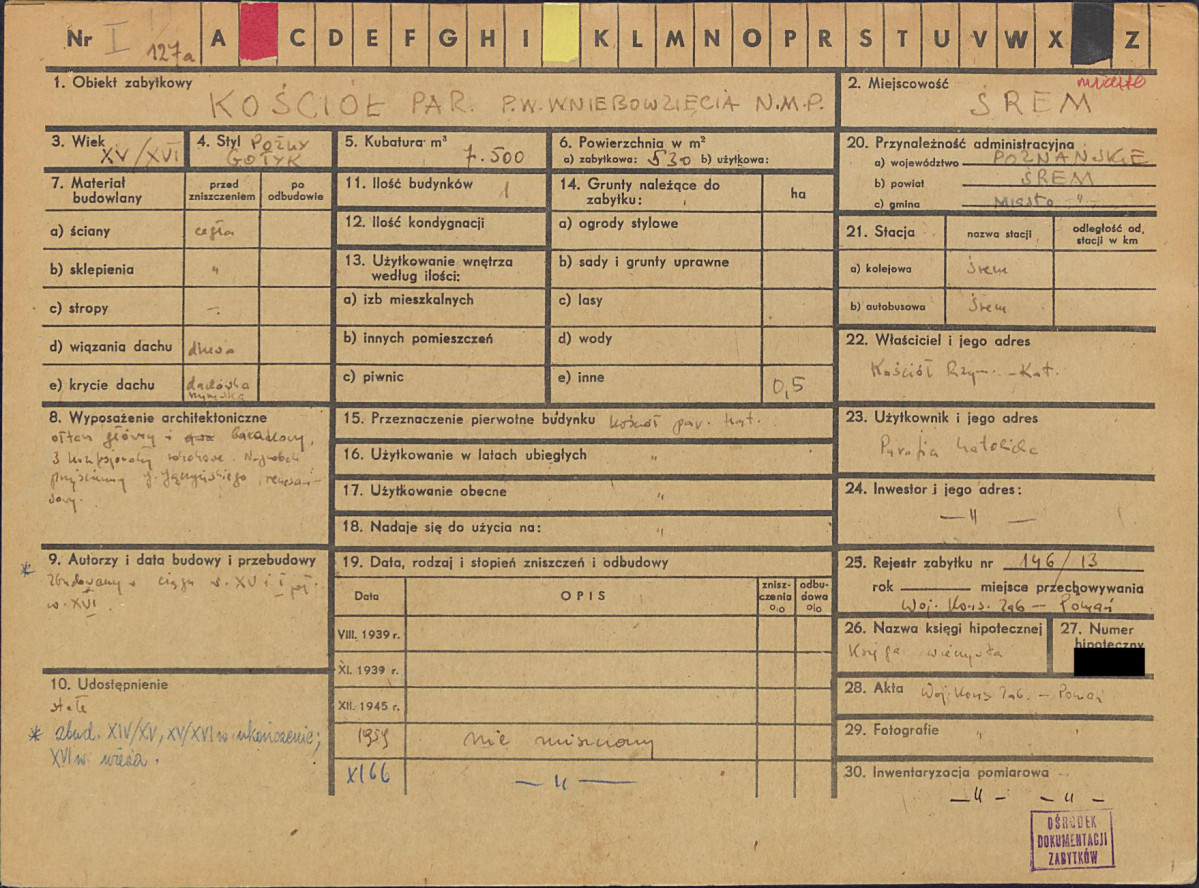 Nr I 127a A C D E F G H I K L M N O P R S T U V W X Z
1. Obiekt zabytkowy
KOŚCIÓŁ PAR. P.W. WNIEBOWZIĘCIA N.M.P.
2. Miejscowość
miasto
ŚREM
3. Wiek XV/XVI
4. Styl PÓŹNY
GOTYK
5. Kubatura m³ 7.500
6. Powierzchnia w m²
a) zabytkowa: 530 b) użytkowa:
20. Przynależność administracyjna
a) województwo POZNAŃSKIE
b) powiat ŚREM
c) gmina miasto "
7. Materiał budowlany
przed zniszczeniem
po odbudowie
a) ściany cegła
b) sklepienia "
c) stropy -.
d) wiązania dachu drewno
e) krycie dachu dachówka
11. Ilość budynków 1
12. Ilość kondygnacji
13. Użytkowanie wnętrza
według ilości:
a) izb mieszkalnych
b) innych pomieszczeń
c) piwnic
14. Grunty należące do
zabytku:
ha
a) ogrody stylowe
b) sady i grunty uprawne
c) lasy
d) wody
e) inne 0,5
21. Stacja
nazwa stacji
odległość od
stacji w km
a) kolejowa Śrem
b) autobusowa Śrem
22. Właściciel i jego adres
Kościół Rzym.-Kat.
8. Wyposażenie architektoniczne
ołtarz główny barokowy,
3 konfesjonały rokokowe. Nagrobek
przyścienny renesan-
sowy.
15. Przeznaczenie pierwotne budynku kościół par. kat.
16. Użytkowanie w latach ubiegłych "
17. Użytkowanie obecne "
18. Nadaje się do użycia na: "
23. Użytkownik i jego adres
Parafia katolicka
24. Inwestor i jego adres:
— " —
9. Autorzy i data budowy i przebudowy
* zbudowany w ciągu w. XV i I poł.
w. XVI.
19. Data, rodzaj i stopień zniszczeń i odbudowy
Data
OPIS
znisz-
czenia
%
odbu-
dowa
%
VIII. 1939 r.
XI. 1939 r.
XII. 1945 r.
1959 nie zniszczony
XI 66 — " —
25. Rejestr zabytku nr 146/13
rok miejsce przechowywania
Woj. Kons. Zab — Poznań
26. Nazwa księgi hipotecznej
Księga wieczysta
27. Numer
hipoteczny
28. Akta Woj. Kons. Zab. — Poznań
29. Fotografie "
30. Inwentaryzacja pomiarowa
— " — — " —
10. Udostępnienie
stałe
* zbud. XIV/XV, XV/XVI w. ukończenie;
XVI w. wieża.
OŚRODEK
DOKUMENTACJI
ZABYTKÓW